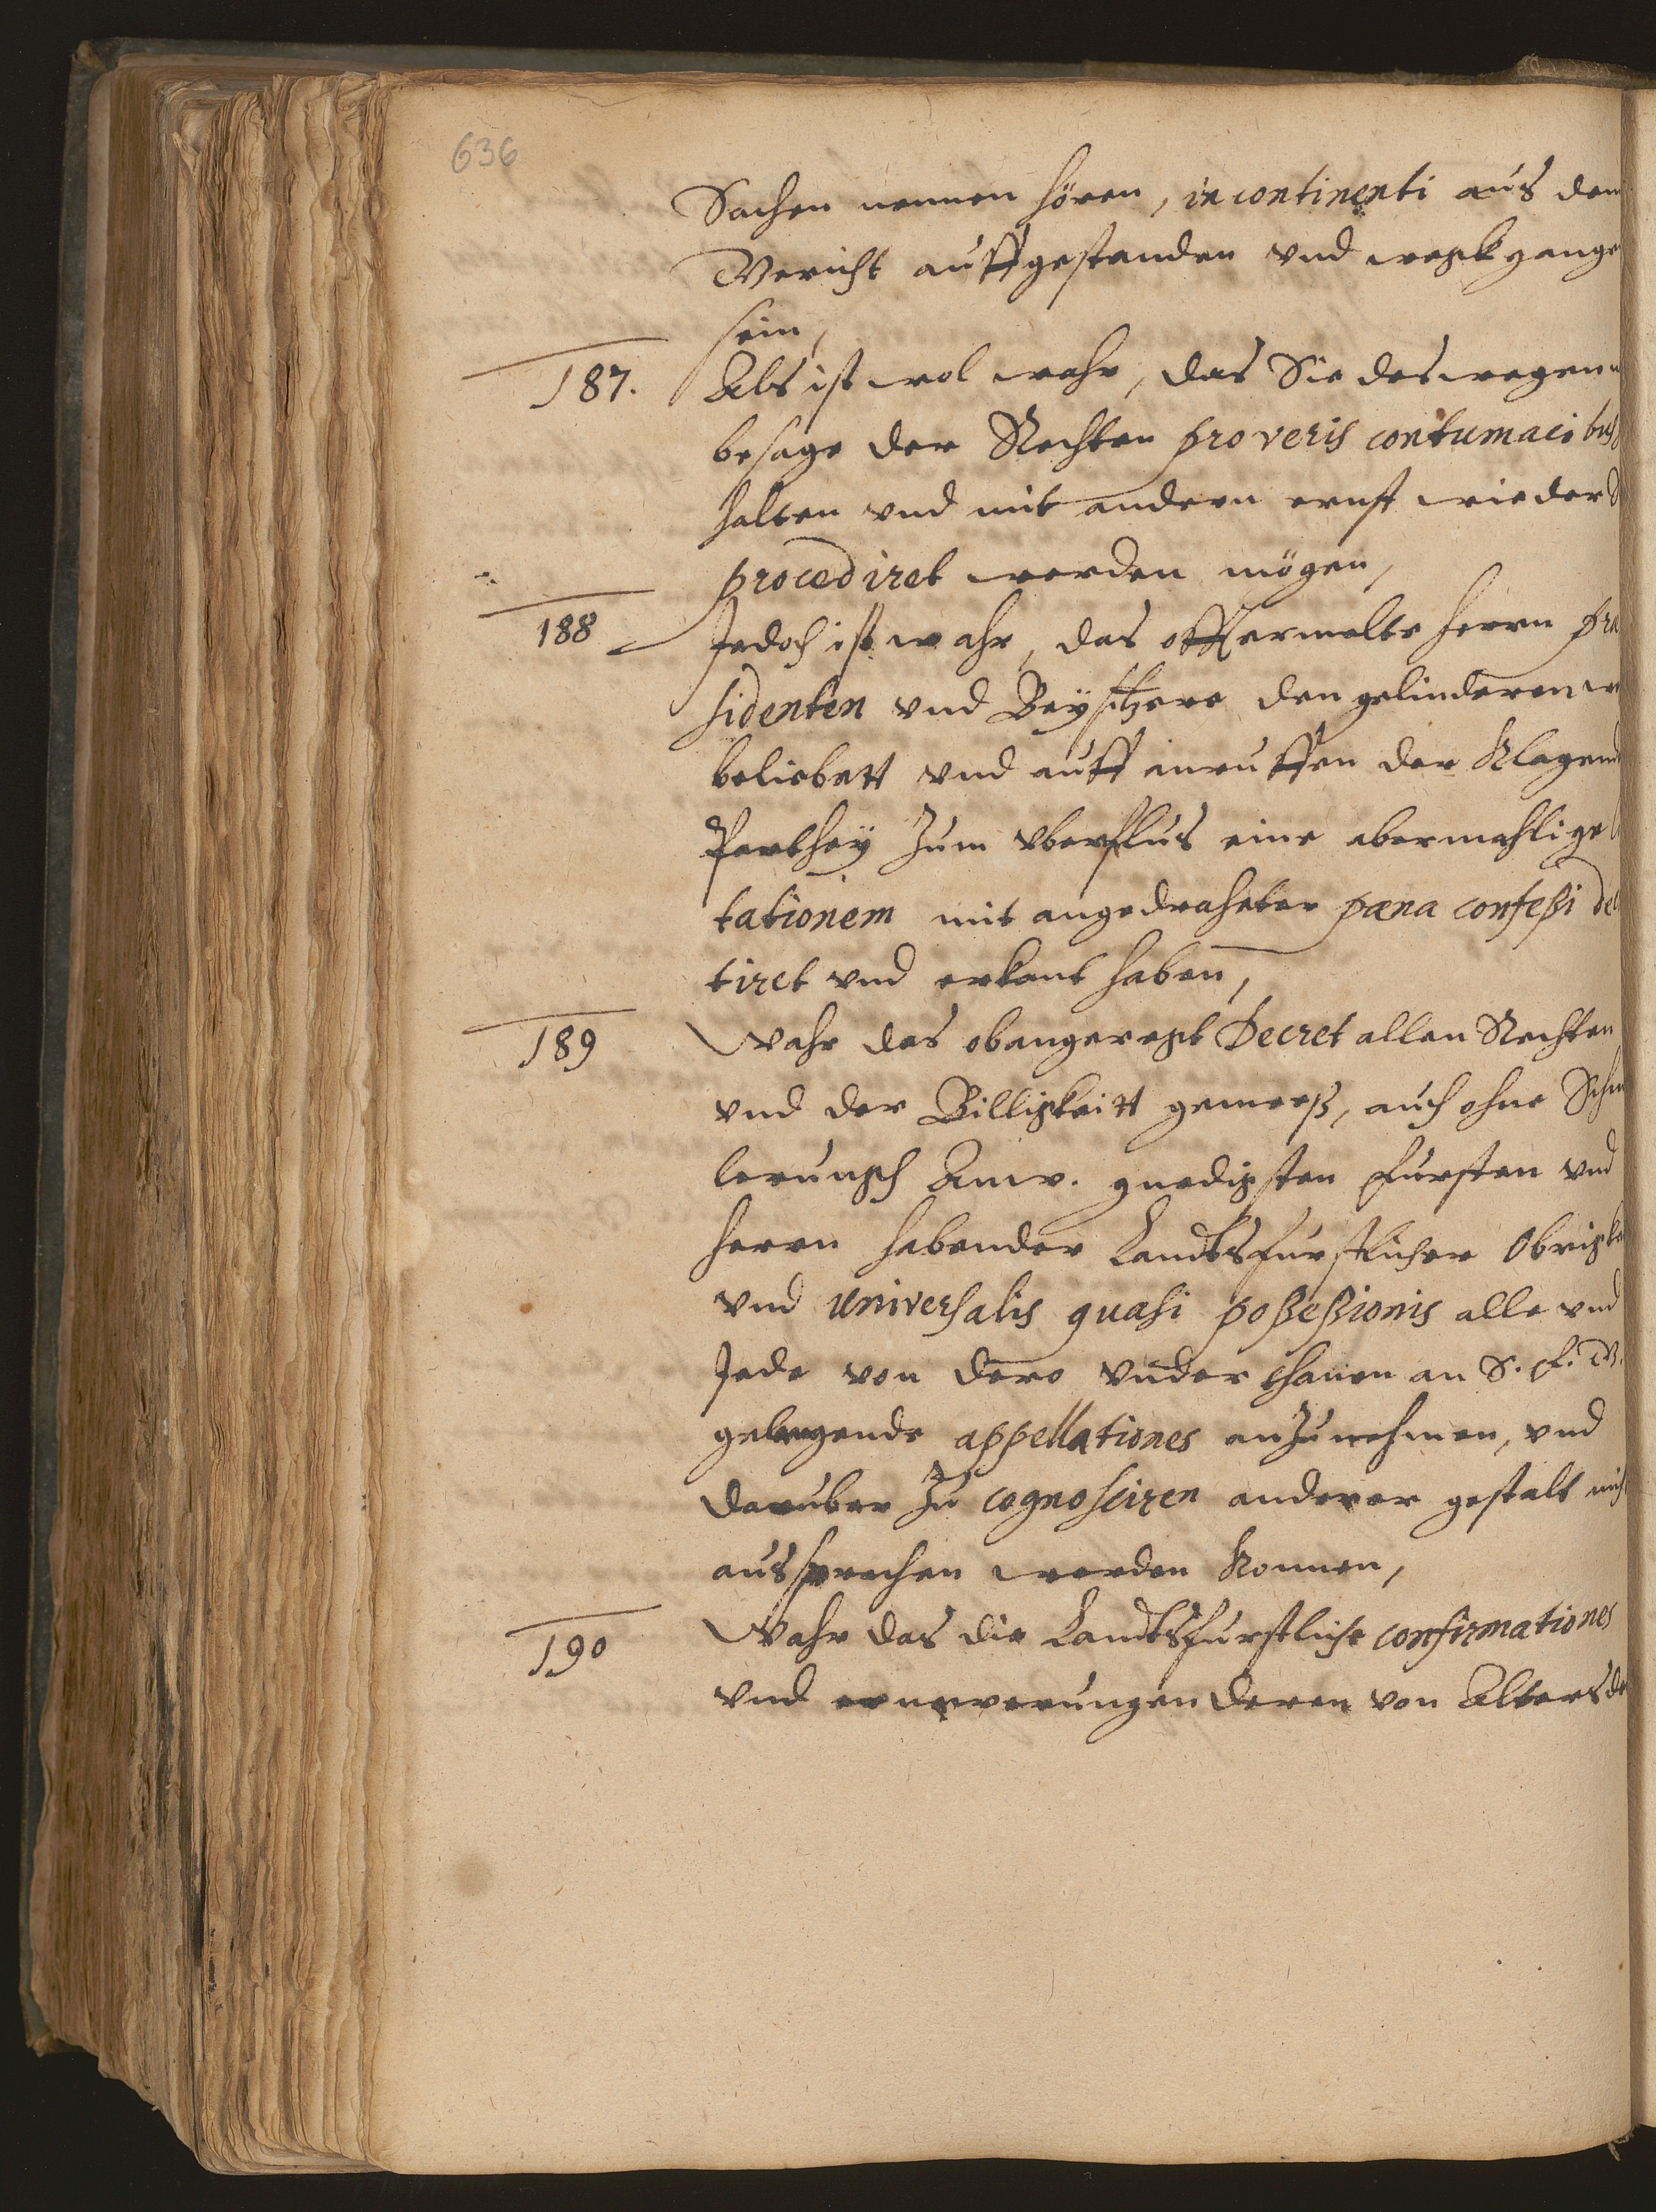 636
Sachen nennen hören, in continenti aus dem
Gericht auffgestanden vnd wegkgange
sein,
187. Als ist wol wahr, das Sie deswegen
besage der Rechten pro veris contumacibus
halten vnd mit andern ernst wieder
procediret werden mögen,
188 Jedoch ist wahr, das offtermelte Herrn Præ
sidenten vnd Beysitzere den gelinderen
beliebett vnd auff anruffen der Klagend
Parthey Zum vberflus eine abermahlige
tationem mit angedraheter pæna confeßi de
tiret vnd erkant haben,
189 Wahr das obangeregt Decret allen Rechten
vnd der Billigkeitt gemeeß, auch ohne Schm
lerungh Anw. gnedigsten Fursten vnd
Herrn habender Landtsfurstlicher Obrigke
vnd universalis quasi poßeßionis alle vnd
Jede von dero vnderthanen an S. F. G.
gelangende appellationes anZunehmen, vnd
daruber Zu cognosciren anderer gestalt nich
aussprechen werden Konnen,
190 Wahr das die Landtsfurstliche confirmationes
vnd ernewerungen deren von Alters